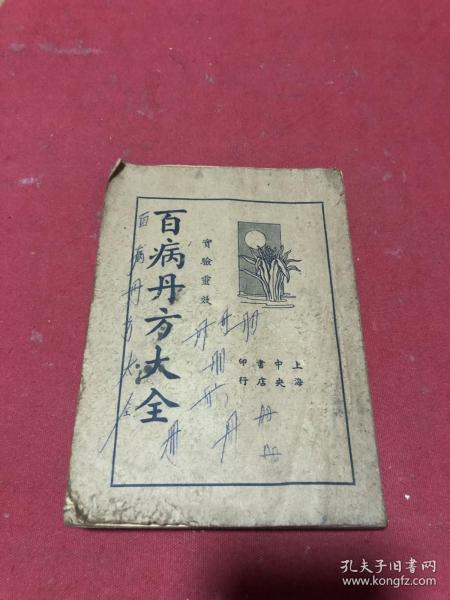 上海
中央
書店
印行
實驗靈效
百病丹方大全
百病丹方大全
丹
册
册
册
孔夫子旧书网
www.kongfz.com